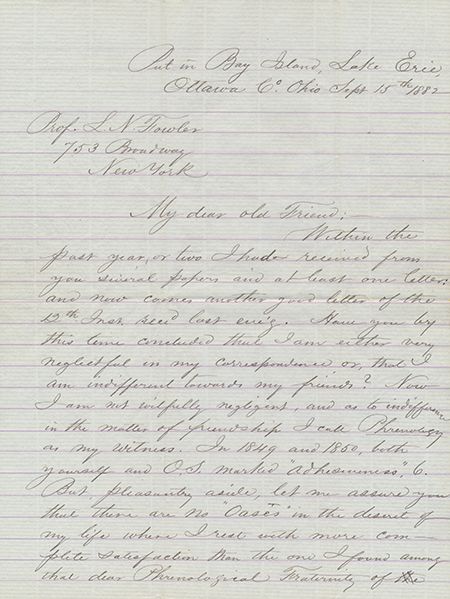 Put in Bay Island, Lake Erie,
Ottawa Co. Ohio Sept 15th 1882
Prof. L. N. Fowler
753 Broadway
New York
My dear old Friend:—
Within the
past year, or two I have received from
you several papers and at least one letter:
and now comes another good letter of the
12th. Inst. rec'd last ev'g. Have you by
this time concluded that I am either very
neglectful in my correspondence or, that I
am indifferent towards my friends? Now
I am not wilfully negligent, and as to indifference
in the matter of friendship I call Phrenology
as my witness. In 1849 and 1850, both
yourself and O.S. marked "adhesiveness", 6.
But, pleasantry aside, let me assure you
that there are no "Oases" in the desert of
my life where I rest with more com-
plete satisfaction than the one I found among
that dear Phrenological Fraternity of the